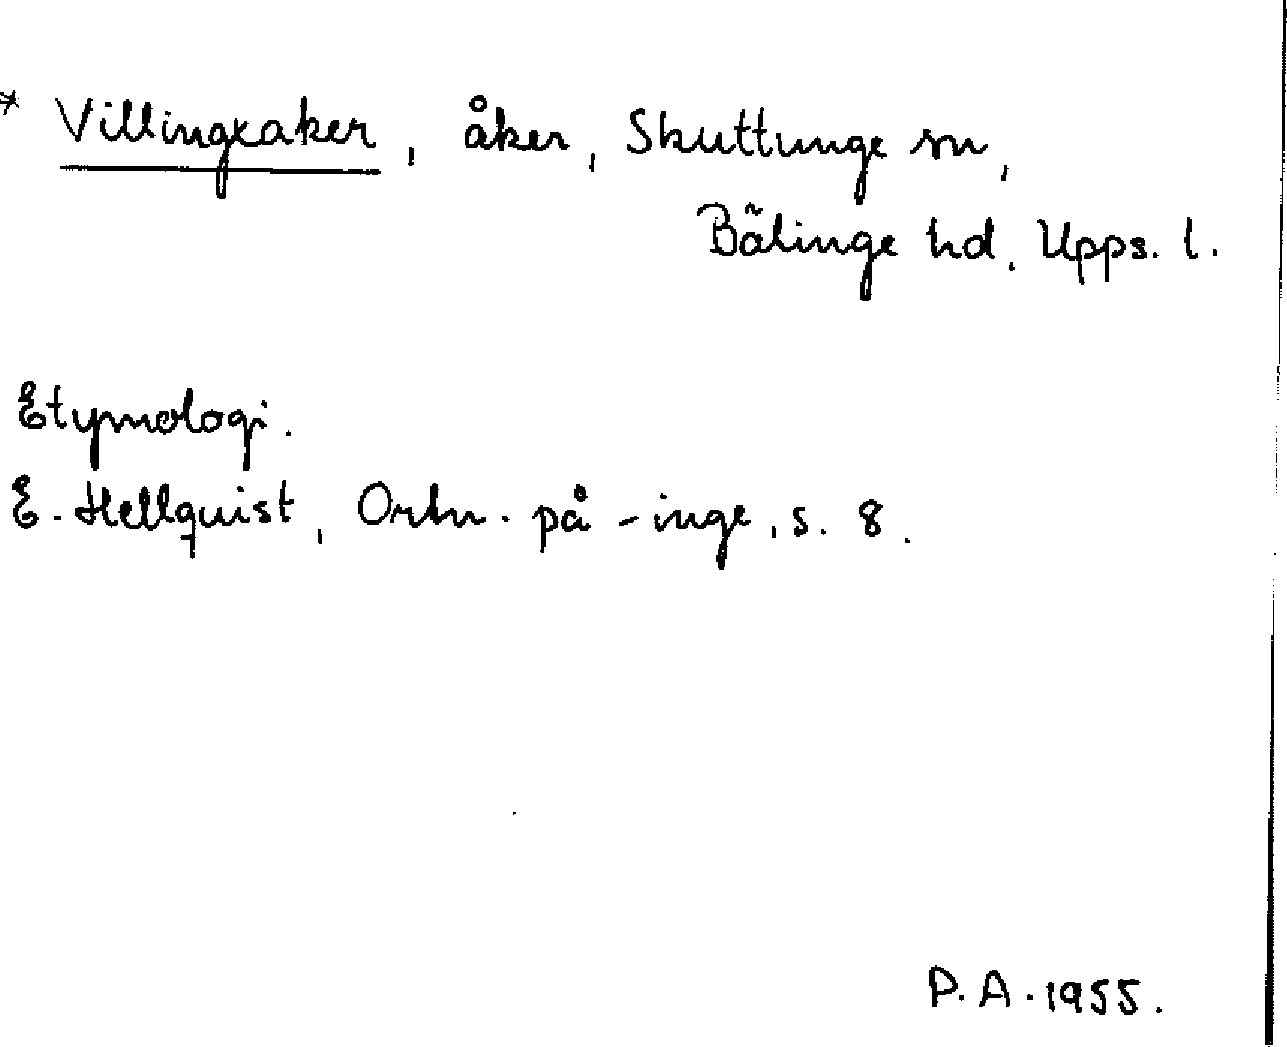 * Villingxaker, åker, Skuttunge sn,
Bälinge hd, Upps. l.
Etymologi.
E. Hellquist, Ortn. på -inge, s. 8.
P. A. 1955.